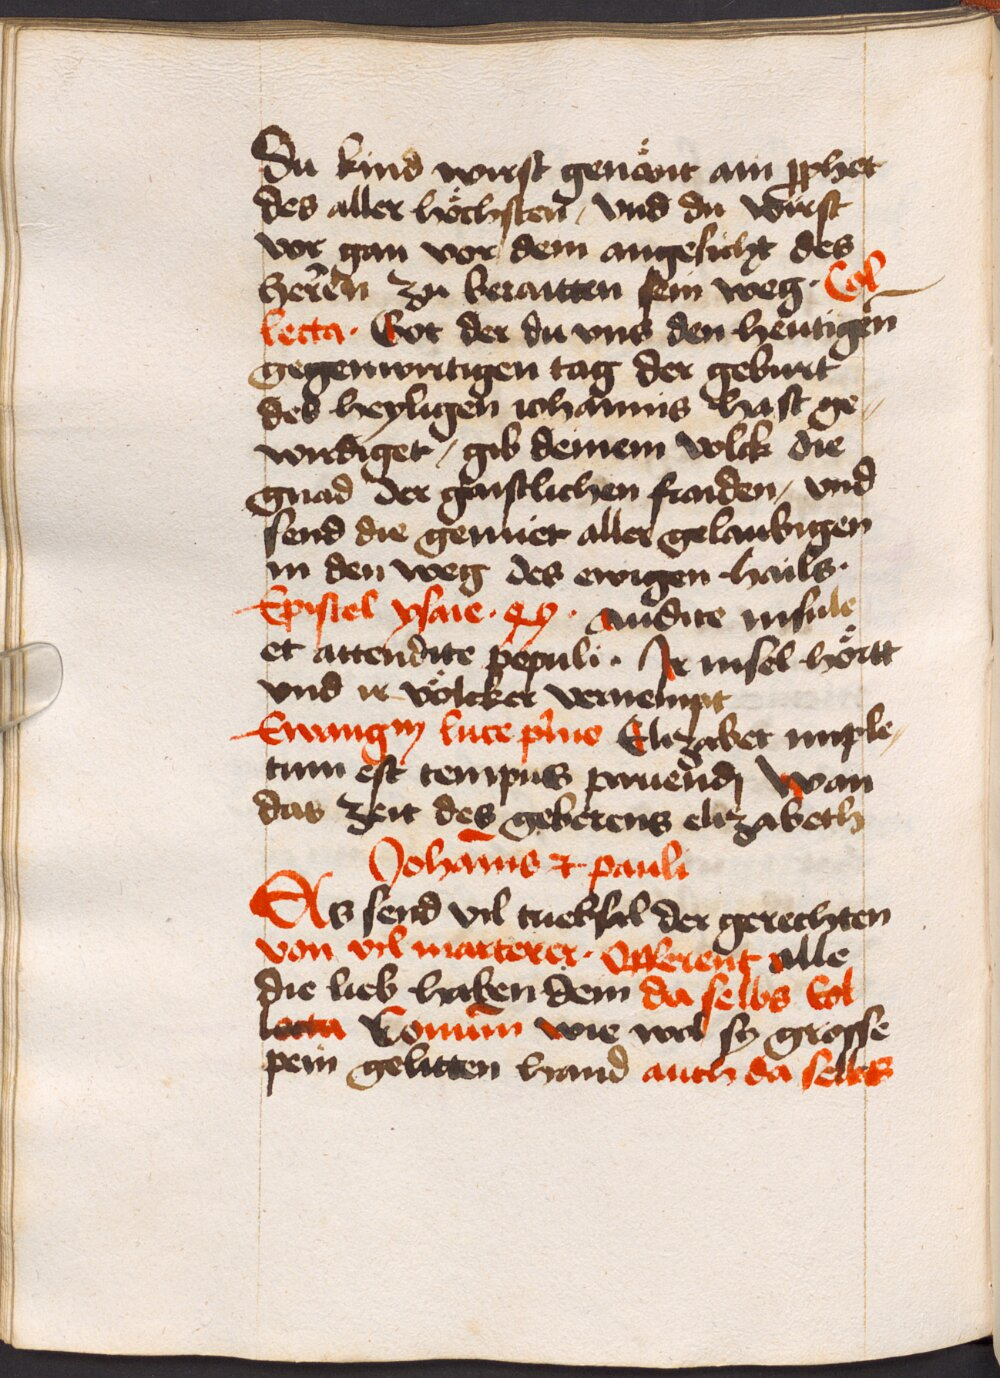 Du kind wirst genönt ain ꝓphet
des aller höchsten / vnd du wirst
vor gan vor dem angesicht des
herren zu beraitten sein weg · Col
lecta · Got der du vns den heutigen
gegenwirtigen tag der geburt
des heyligen iohannis hast ge⸗
wirdiget / gib deinem volck die
gnad der gaistlichen fraiden / vnd
send die gemiet aller gelaubigen
in den weg des ewigen hails ·
Epistel ysaie · 49 · Audite insule
et attendite populi · Ir insel hörtt
vnd ir völcker vernempt
Ewangm luce prīo Elizabet imple⸗
tum est tempus pariendj Wan
das zeit des geberens elizabeth
Johānis & pauli
As send vil triebsal der gerechten
von vil marterer · Offerent alle
die lieb haben dem da selbs Col
lecta Comūm wie wol sy grosse
pein gelitten hand auch da selbs